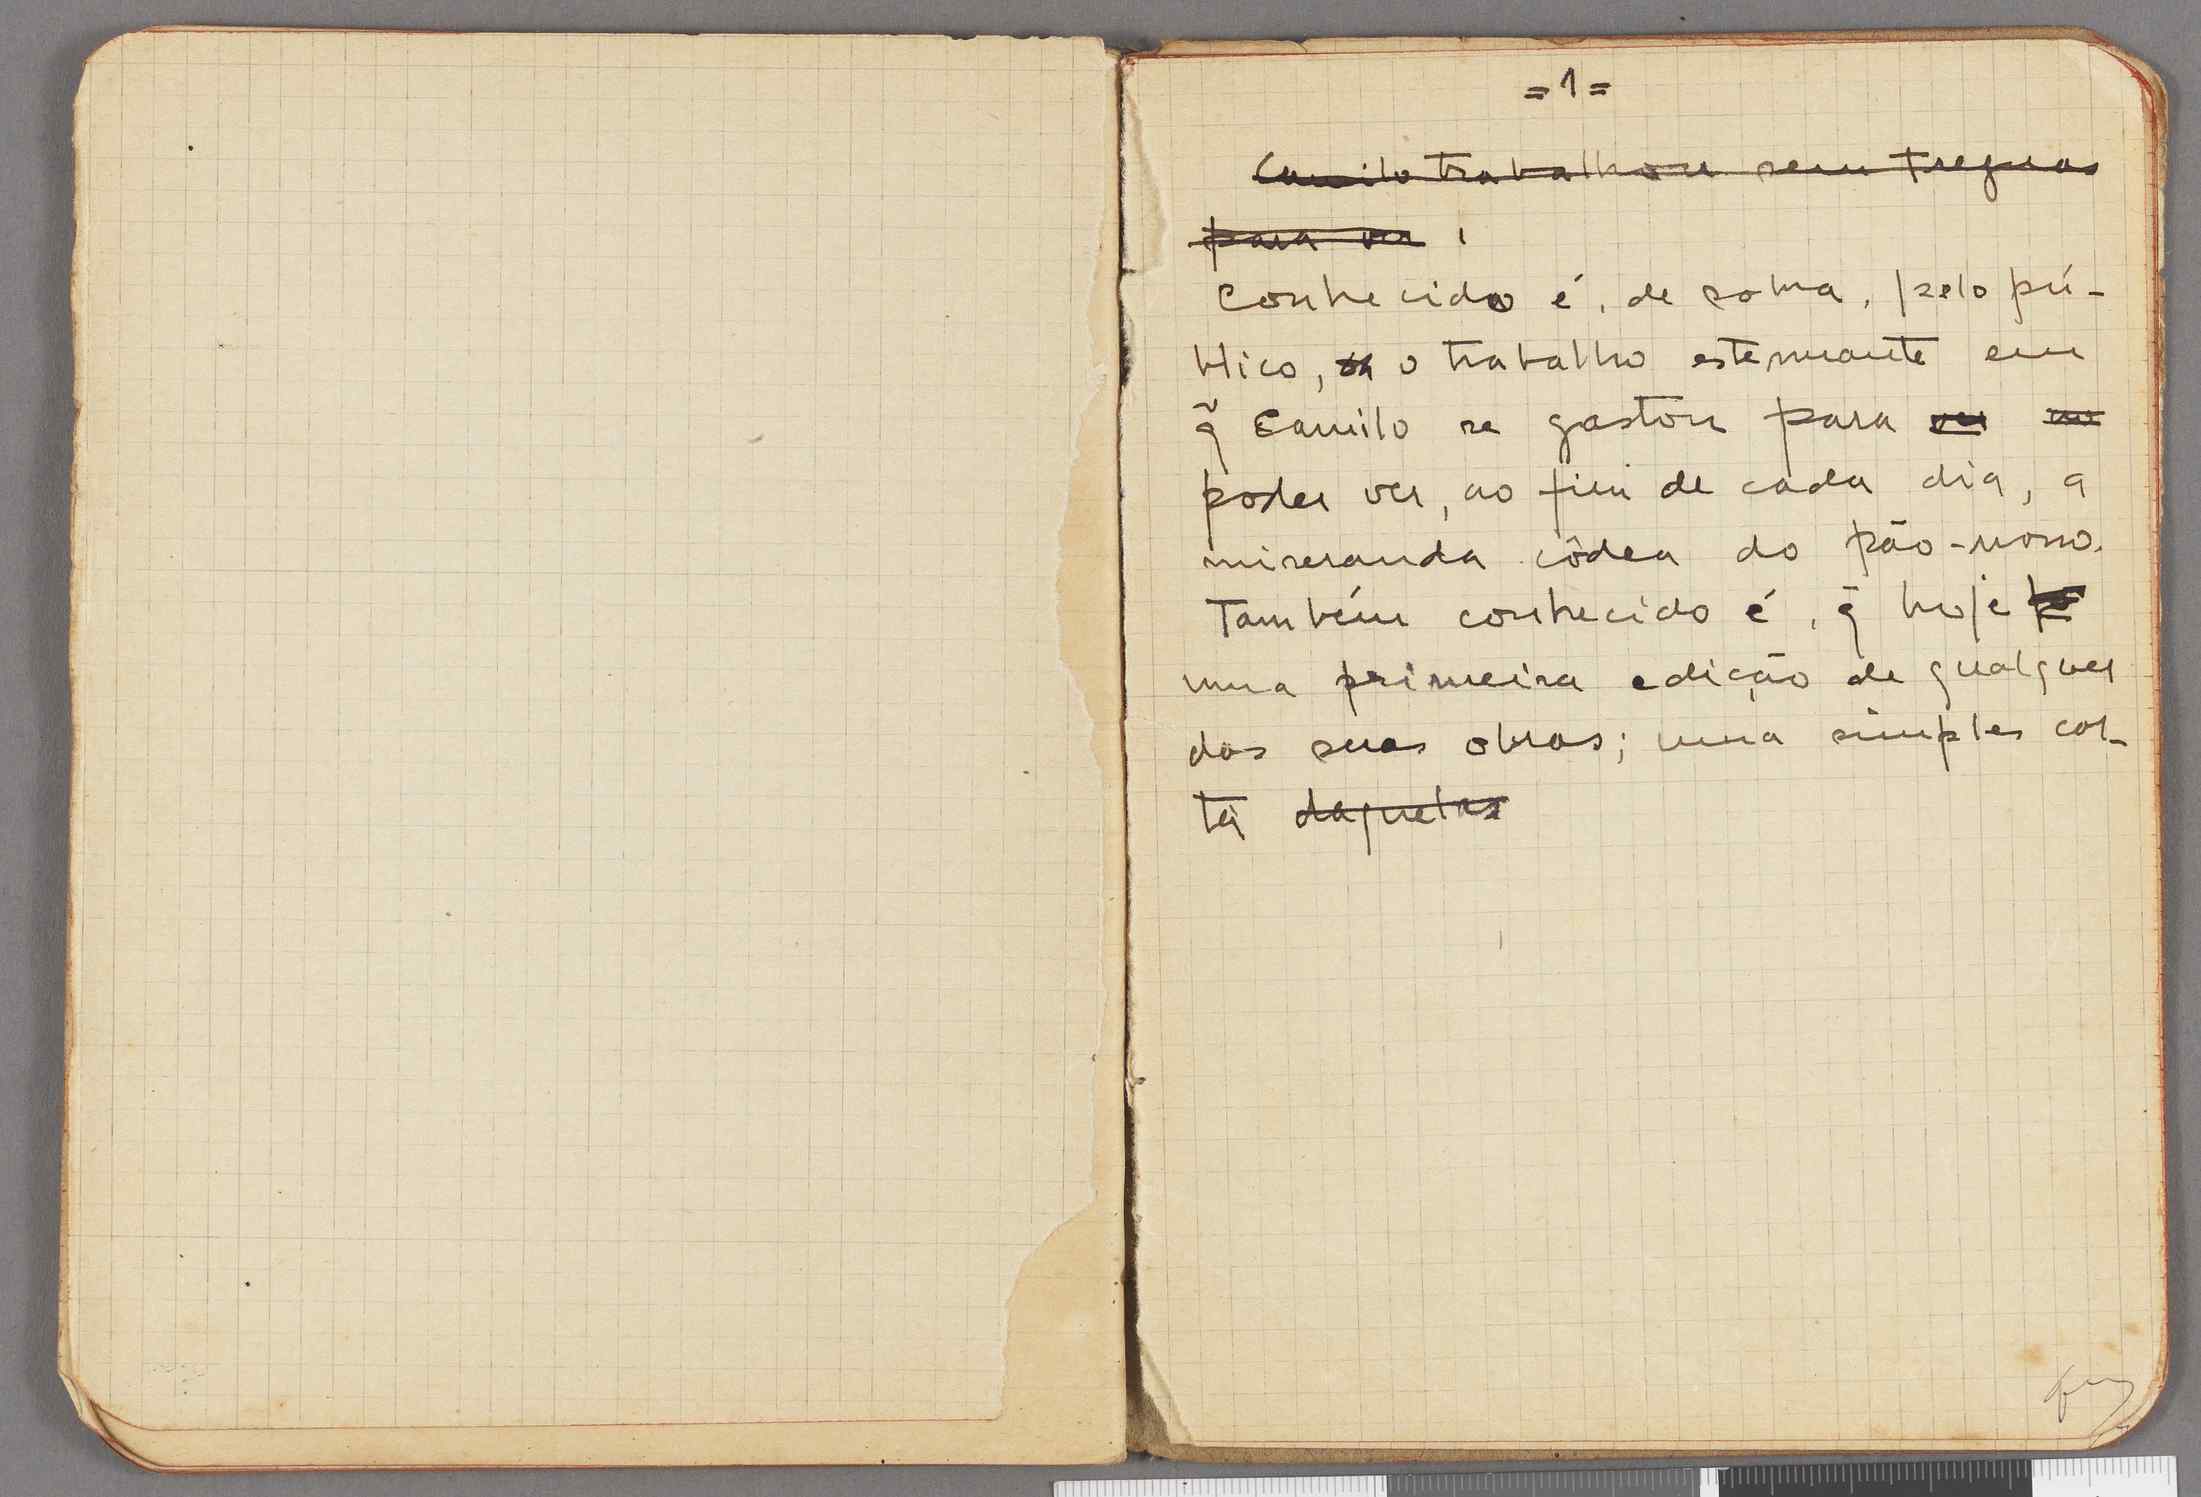 =1=
Camilo trabalhou sem treguas
para ver
Conhecido é, de sobra, pelo pú-
blico, o trabalho estenuante em
q̃ Camilo se gastou para ver no
poder ver, ao fim de cada dia, a
miseranda côdea do pão-nosso.
Também conhecido é, q̃ hoje
uma primeira edição de qualquer
das suas obras; uma simples car-
ta daquelas